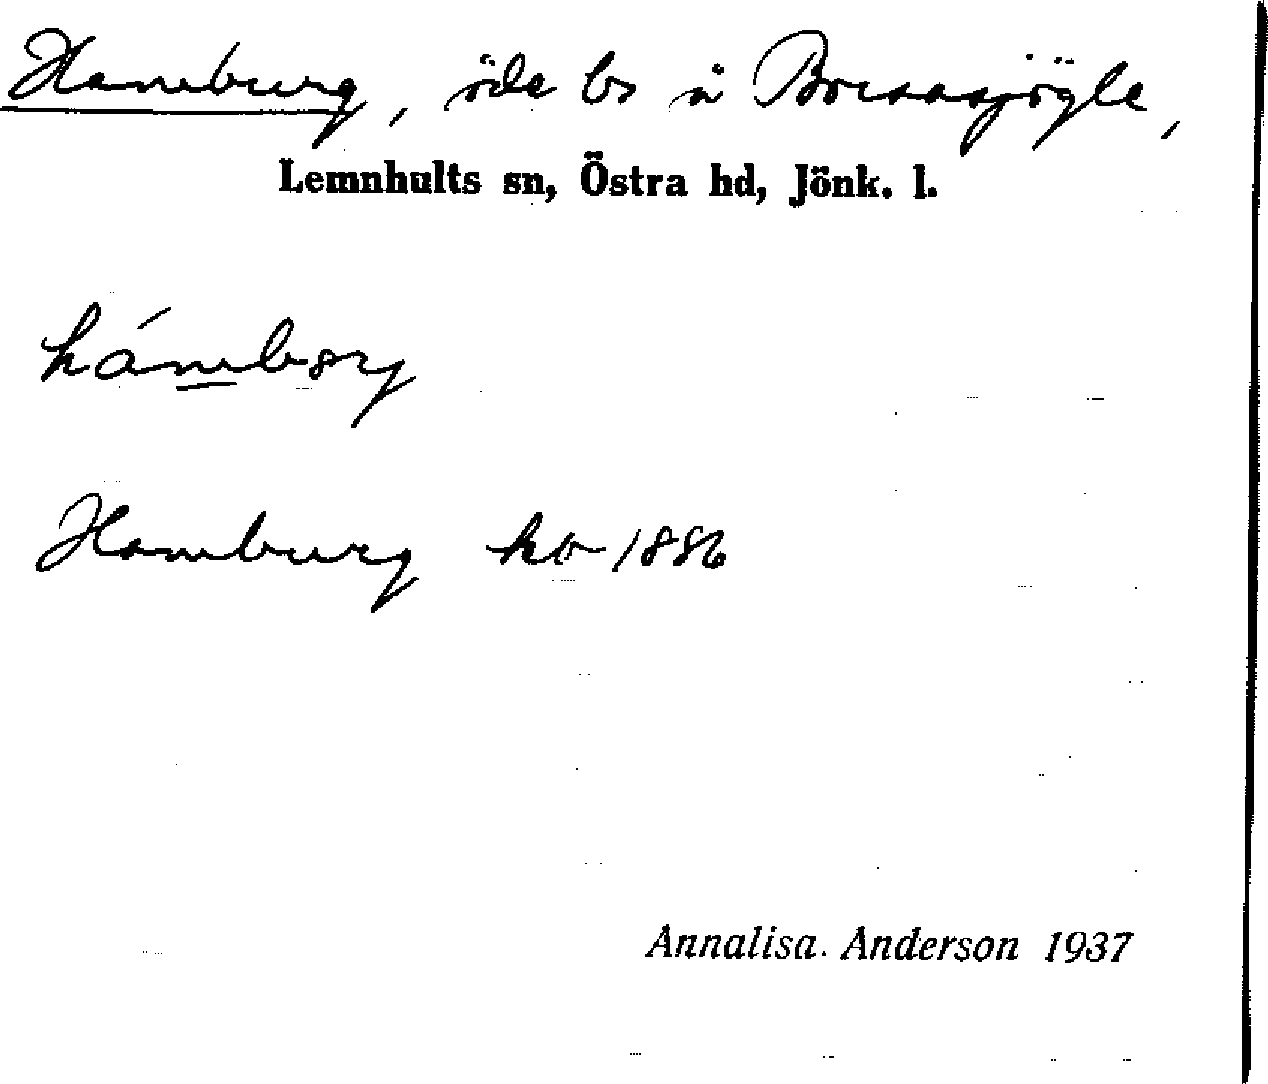 Hamburg, öde bs å
Lemnhults sn, Östra hd, Jönk. l.
Hamburg kb 1886
Annalisa Anderson 1937